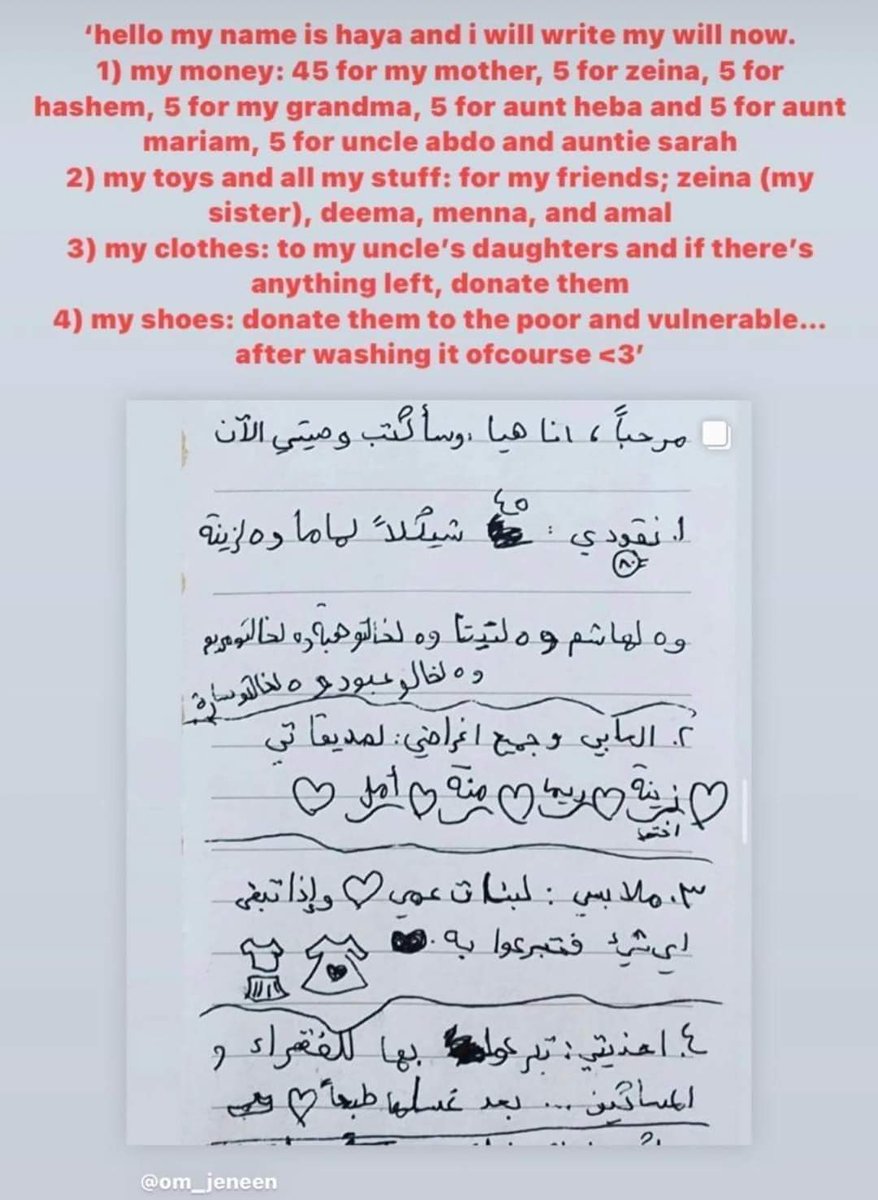 ‘hello my name is haya and i will write my will now.
1) my money: 45 for my mother, 5 for zeina, 5 for
hashem, 5 for my grandma, 5 for aunt heba and 5 for aunt
mariam, 5 for uncle abdo and auntie sarah
2) my toys and all my stuff: for my friends; zeina (my
sister), deema, menna, and amal
3) my clothes: to my uncle’s daughters and if there’s
anything left, donate them
4) my shoes: donate them to the poor and vulnerable...
after washing it ofcourse <3’
مرحباً ، انا هيا ، وسأكتب وصيتي الآن
٤٥
١. نقودي : شيكلاً لماما و ٥ لزينة
٨٠
و ٥ لهاشم و ٥ لتيتا و ٥ لخالتو هبة و ٥ لخالتو مريم
و ٥ لخالو عبود و ٥ لخالتو سارة
٢. العابي و جميع اغراضي : لصديقاتي
زينة ريما منة أمل
اختي
٣. ملابسي : لبنات عمي وإذا تبقى
اي شيئ فتبرعوا به .
٤. احذيتي : تبرعوا بها للفقراء و
المساكين ... بعد غسلها طبعاً
@om_jeneen